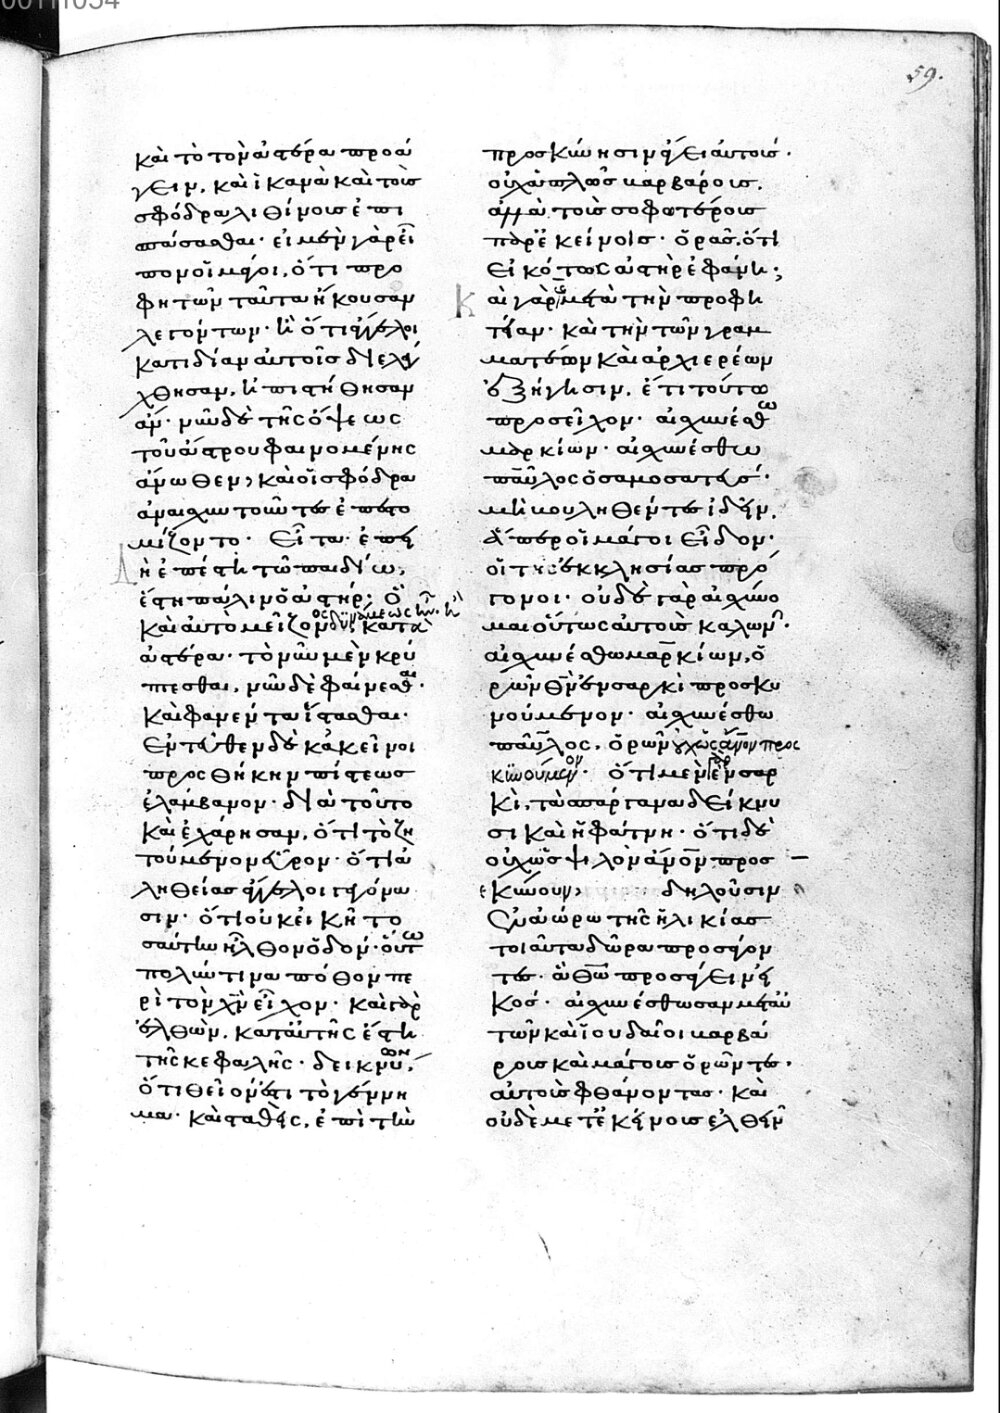 59.
καὶ τὸ τὸν ἀστέρα προά
γειν, καὶ ἱκανὰ καὶ τοὺς
σφόδρα λιθίνους ἐπι
σπάσασθαι· εἰ μὲν γὰρ εἶ
πον οἱ μάγοι, ὅτι προ
φητῶν ταῦτα ἤκουσαν
λεγόντων· ἢ ὅτι ἄγγελοι
κατιδίαν αὐτοῖς διελέ
χθησαν, ἠπιστήθησαν
ἄν· νῦν δὲ τῆς ὄψεως
τοῦ ἄστρου φαινομένης
ἄνωθεν, καὶ οἱ σφόδρα
ἀναισχυντοῦντες ἐπεστο
μίζοντο· Εἶτα ἐπει
δὴ ἐπέστη τῶ παιδίω,
ἔστη πάλιν ὁ ἀστήρ· ὃ
καὶ αὐτὸ μείζονος δυνάμεως ἦν· ἢ κατὰ
ἀστέρα· τὸ νῦν μὲν κρύ
πτεσθαι, νῦν δὲ φαίνεσθαι·
καὶ φανέντα ἵστασθαι·
Ἐντεῦθεν δὲ κἀκεῖνοι
προσθήκην πίστεως
ἐλάμβανον· διὰ τοῦτο
καὶ ἐχάρησαν, ὅτι τὸ ζη
τούμενον εὗρον· ὅτι ἀ
ληθείας ἄγγελοι γεγόνα
σιν· ὅτι οὐκ εἰκῆ το
σαύτην ἦλθον ὁδόν· οὕτω
πολύν τινα πόθον πε
ρὶ τὸν χν εἶχον· καὶ γὰρ
ἐλθὼν, κατ αὐτῆς ἔστη
τῆς κεφαλῆς· δεικνύων,
ὅτι θεῖόν ἐστι τὸ γέννη
μα· καὶ σταθεὶς, ἐπὶ τὴν
προσκύνησιν ἄγει αὐτούς·
οὐχ ἁπλῶς βαρβάρους,
ἀλλὰ τοὺς σοφωτέρους
παρ ἐκείνοις· ὁρᾶς, ὅτι
εἰκότως ἀστὴρ ἐφάνη;
Καὶ γὰρ μετὰ τὴν προφη
τείαν· καὶ τὴν τῶν γραμ
ματέων καὶ ἀρχιερέων
ἐξήγησιν, ἔτι τούτω
προσεῖχον· αἰσχυνέσθω
μαρκίων· αἰσχυνέσθω
παῦλος ὁ σαμοσατεύς·
μὴ βουληθέντες ἰδεῖν,
ἅπερ οἱ μάγοι εἶδον·
οἱ τῆς ἐκκλησίας πρό
γονοι· οὐδὲ γὰρ αἰσχύνο
μαι οὕτως αὐτοὺς καλῶν·
αἰσχυνέσθω μαρκίων, ὁ
ρῶν θν ἐν σαρκὶ προσκυ
νούμενον· αἰσχυνέσθω
παῦλος, ὁρῶν οὐχ ὡς ἄνον προσ
κυνούμενον· ὅτι μὲν γὰρ ἐν σαρ
κὶ, τὰ σπάργανα δείκνυ
σι καὶ ἡ φάτνη· ὅτι δὲ
οὐχ ὡς ψιλὸν ἄνον προσ
εκύνουν, δηλοῦσιν
ἐν ἀώρω τῆς ἡλικίας
τοιαῦτα δῶρα προσάγον
τες· ἃ θῶ προσάγειν εἰ
κός· αἰσχυνέσθωσαν μετ αὐ
τῶν καὶ ἰουδαῖοι βαρβά
ρους καὶ μάγους ὁρῶντες·
αὐτοὺς φθάνοντας· καὶ
οὐδὲ μετ ἐκείνους ἐλθεῖν